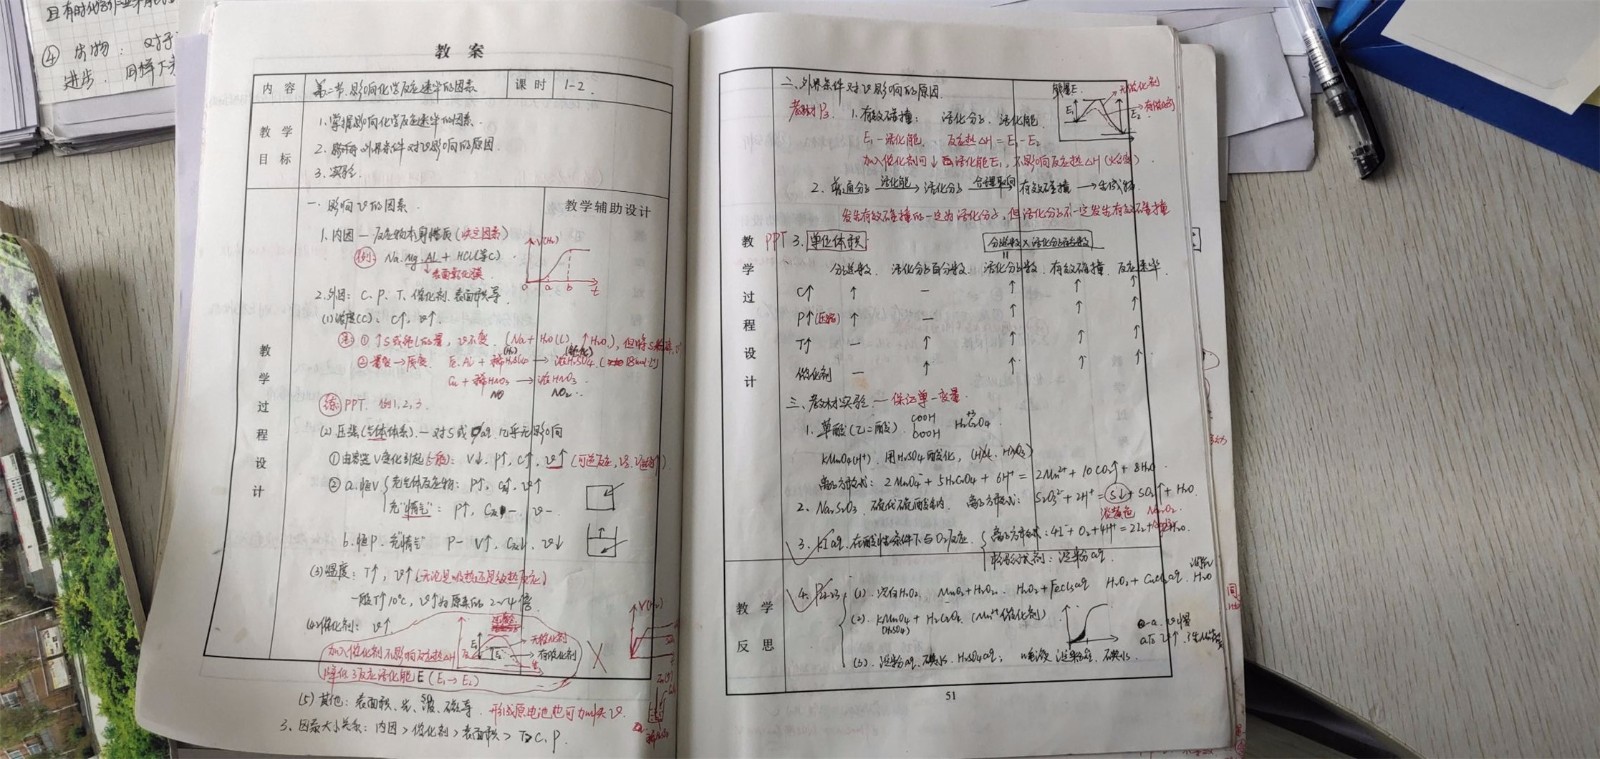 ④ 生物：对于
进步．同样下关
教 案
内 容 第二节．影响化学反应速率的因素 课 时 1-2．
教 学
目 标
1．掌握影响化学反应速率的因素．
2．影响外界条件对v影响的原因．
3．实验．
教学过程设计
教学辅助设计
一．影响v的因素．
1．内因—反应物本身性质(决定因素)
例：Na．Mg．Al + HCl(等C)
表面氧化膜
V(H₂)
0 a b t
2．外因：C、P、T、催化剂、表面积等
(1)浓度(C)：C↑，v↑．
注①↑S或纯L的量，v不变．(Na + H₂O(L)，↑H₂O)，但
②量变→质变．Fe、Al + 稀H₂SO₄ → 浓H₂SO₄．
(H₂) (钝化)
Cu + 稀HNO₃ → 浓HNO₃．
NO NO₂
练 PPT．例1，2，3．
(2)压强(气体体系)．—对S或 几乎无影响
①由容器V变化引起：V↓，P↑，C↑，v↑
②a．恒V 充气体反应物：P↑，C↑，v↑
充"惰气"：P↑，C—，v—．
b．恒P．充"惰气" P— V↑，C↓，v↓
(3)温度：T↑，v↑(无论是吸热还是放热反应)
一般T↑10℃，v↑为原来的2~4倍．
(4)催化剂：v↑
加入催化剂不影响反应热△H
降低了反应活化能E (E₁→E₂)
无催化剂
有催化剂
(5)其他：表面积、光、超声波、磁等．形成原电池也可加快v．
3．因素大小关系：内因＞催化剂＞表面积＞T＞C、P．
二．外界条件对v影响的原因．
教材P₂₃．1．有效碰撞：活化分子、活化能．
能量E
E₁ E₂
无催化剂
有催化剂
E₁—活化能． 反应热△H = E₁ - E₂
加入催化剂可↓活化能E₁，不影响反应热△H
2．普通分子 活化能→ 活化分子 合理取向→ 有效碰撞 → 生成物
发生有效碰撞的一定为活化分子，但活化分子不一定发生有效碰撞
教学过程设计
PPT 3．单位体积 分子总数×活化分子百分数
分子总数． 活化分子百分数． 活化分子数．有效碰撞．反应速率
C↑ ↑ — ↑ ↑ ↑
P↑(压缩) ↑ — ↑ ↑ ↑
T↑ — ↑ ↑ ↑ ↑
催化剂 — ↑ ↑ ↑ ↑
三．教材实验．—保证单一变量．
1．草酸(乙二酸)．COOH COOH H₂C₂O₄
KMnO₄(H⁺)．用H₂SO₄酸化，
离子方程式：2MnO₄⁻ + 5H₂C₂O₄ + 6H⁺ = 2Mn²⁺ + 10CO₂↑ + 8H₂O
2．Na₂S₂O₃．硫代硫酸钠．离子方程式：S₂O₃²⁻ + 2H⁺ = S↓ + SO₂↑ + H₂O
淡黄色
3．KI aq．在酸性条件下与O₂反应．离子方程式：4I⁻ + O₂ + 4H⁺ = 2I₂ + 2H₂O．
检验I₂试剂：淀粉aq．
教 学
反 思
4．P₂₂₋₂₃
(1)．H₂O₂． MnO₂ + H₂O₂． H₂O₂ + FeCl₃aq H₂O₂ + CuCl₂aq．
(2)．KMnO₄ + H₂C₂O₄．(Mn²⁺ 催化剂)
(H₂SO₄)
(3)．淀粉aq．碘水．H₂SO₄aq；
51